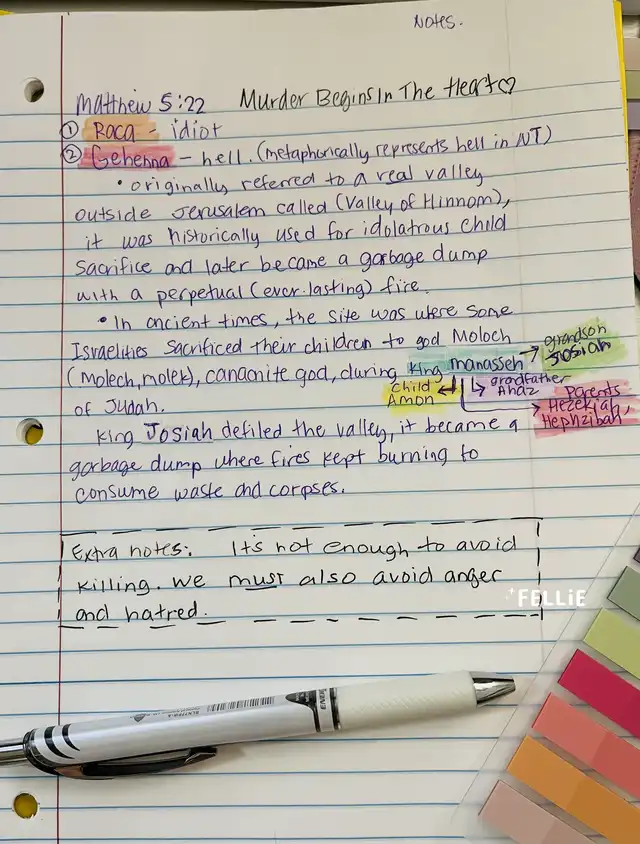 Notes.
Matthew 5:22 Murder Begins In The Heart♡
① Raca - idiot
② Gehenna - hell. (metaphorically represents hell in NT)
• originally referred to a real valley
outside Jerusalem called (Valley of Hinnom),
it was historically used for idolatrous child
sacrifice and later became a garbage dump
with a perpetual (ever-lasting) fire.
• In ancient times, the site was where some
Israelities sacrificed their children to god Moloch
(Molech, molek), canaanite god, during King manasseh → grandson Josiah
child Amon
grandfather Ahaz
Parents Hezekiah, Hephzibah
of Judah.
King Josiah defiled the valley, it became a
garbage dump where fires kept burning to
consume waste and corpses.
Extra notes: It's not enough to avoid
killing. we must also avoid anger
and hatred.
FELLiE